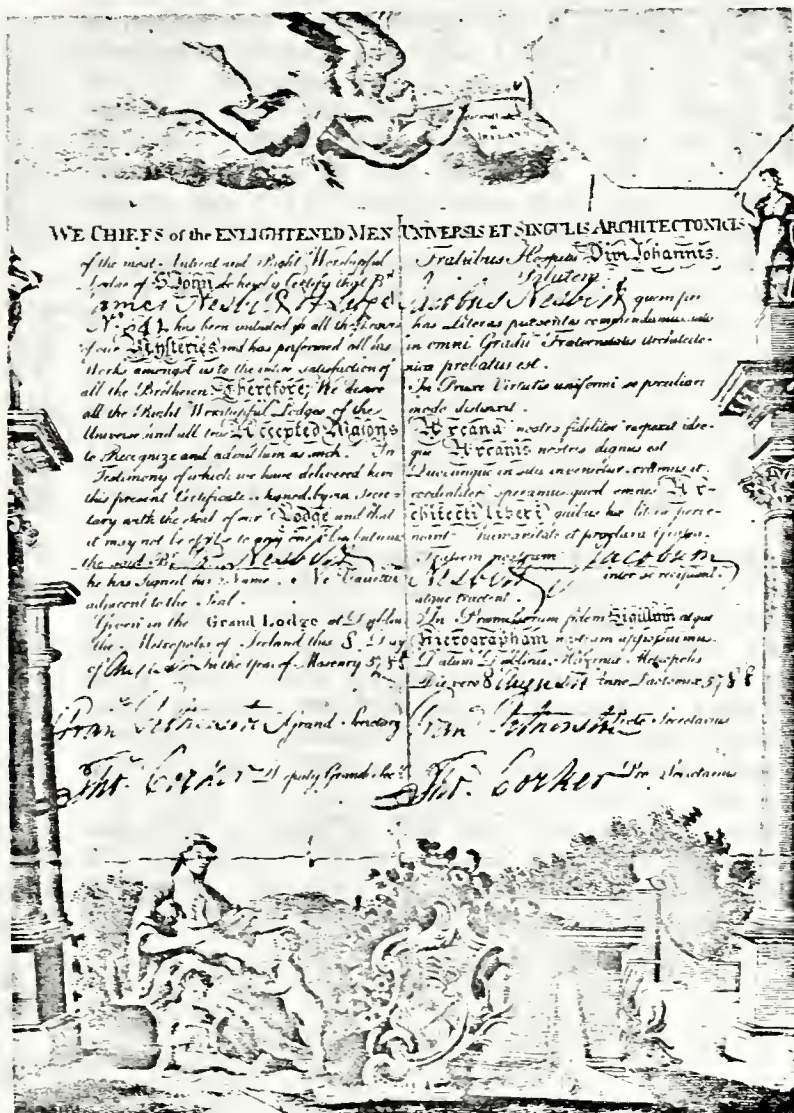 IRELAND
WE CHIEFS of the ENLIGHTENED MEN
of the most Antient and Right Worshipful
Lodge of St. John do hereby Certify that Br.
James Nesbitt of Lodge
No. 641 has been in all the
of our Mysteries and has performed all his
Works amongst us to the entire satisfaction of
all the Brethren Therefore, We desire
all the Right Worshipful Lodges of the
Universe and all true Accepted Masons
to Recognize and admit him as such. In
Testimony of which we have delivered him
this present Certificate Signed by our Secre-
tary with the Seal of our Lodge and that
it may not be of Use to any one
the said Br. Nesbitt
he has Signed his Name
adjacent to the Seal.
Given in the Grand Lodge at Dublin
the Metropolis of Ireland this 8 Day
of August In the Year of Masonry 5788
Grand Secretary
Thos. Corker Deputy Grand Secy.
UNIVERSIS ET SINGULIS ARCHITECTONICIS
Fratribus Hospitii Divi Johannis.
Salutem
Jacobus Nesbitt quem per
has Literas praesentes commendamus
in omni Gradu Fraternitatis Architecto-
nica probatus est.
In Virtutis uniformi se peculiari
modo
Arcana nostra fideliter ideo-
que Arcanis nostris dignus est
Quicunque in
cordialiter speramus quod omnes Ar-
chitecti Liberi quibus hae literae perve-
nient humanitate et
nostrum Jacobum
Nesbitt inter se recipiant
atque tractent.
In Praemissorum fidem Sigillum atque
nostram apposuimus.
Datum Dublinii Metropolis
Die vero 8 August Anno 5788
Secretarius
Thos. Corker Pro Secretarius